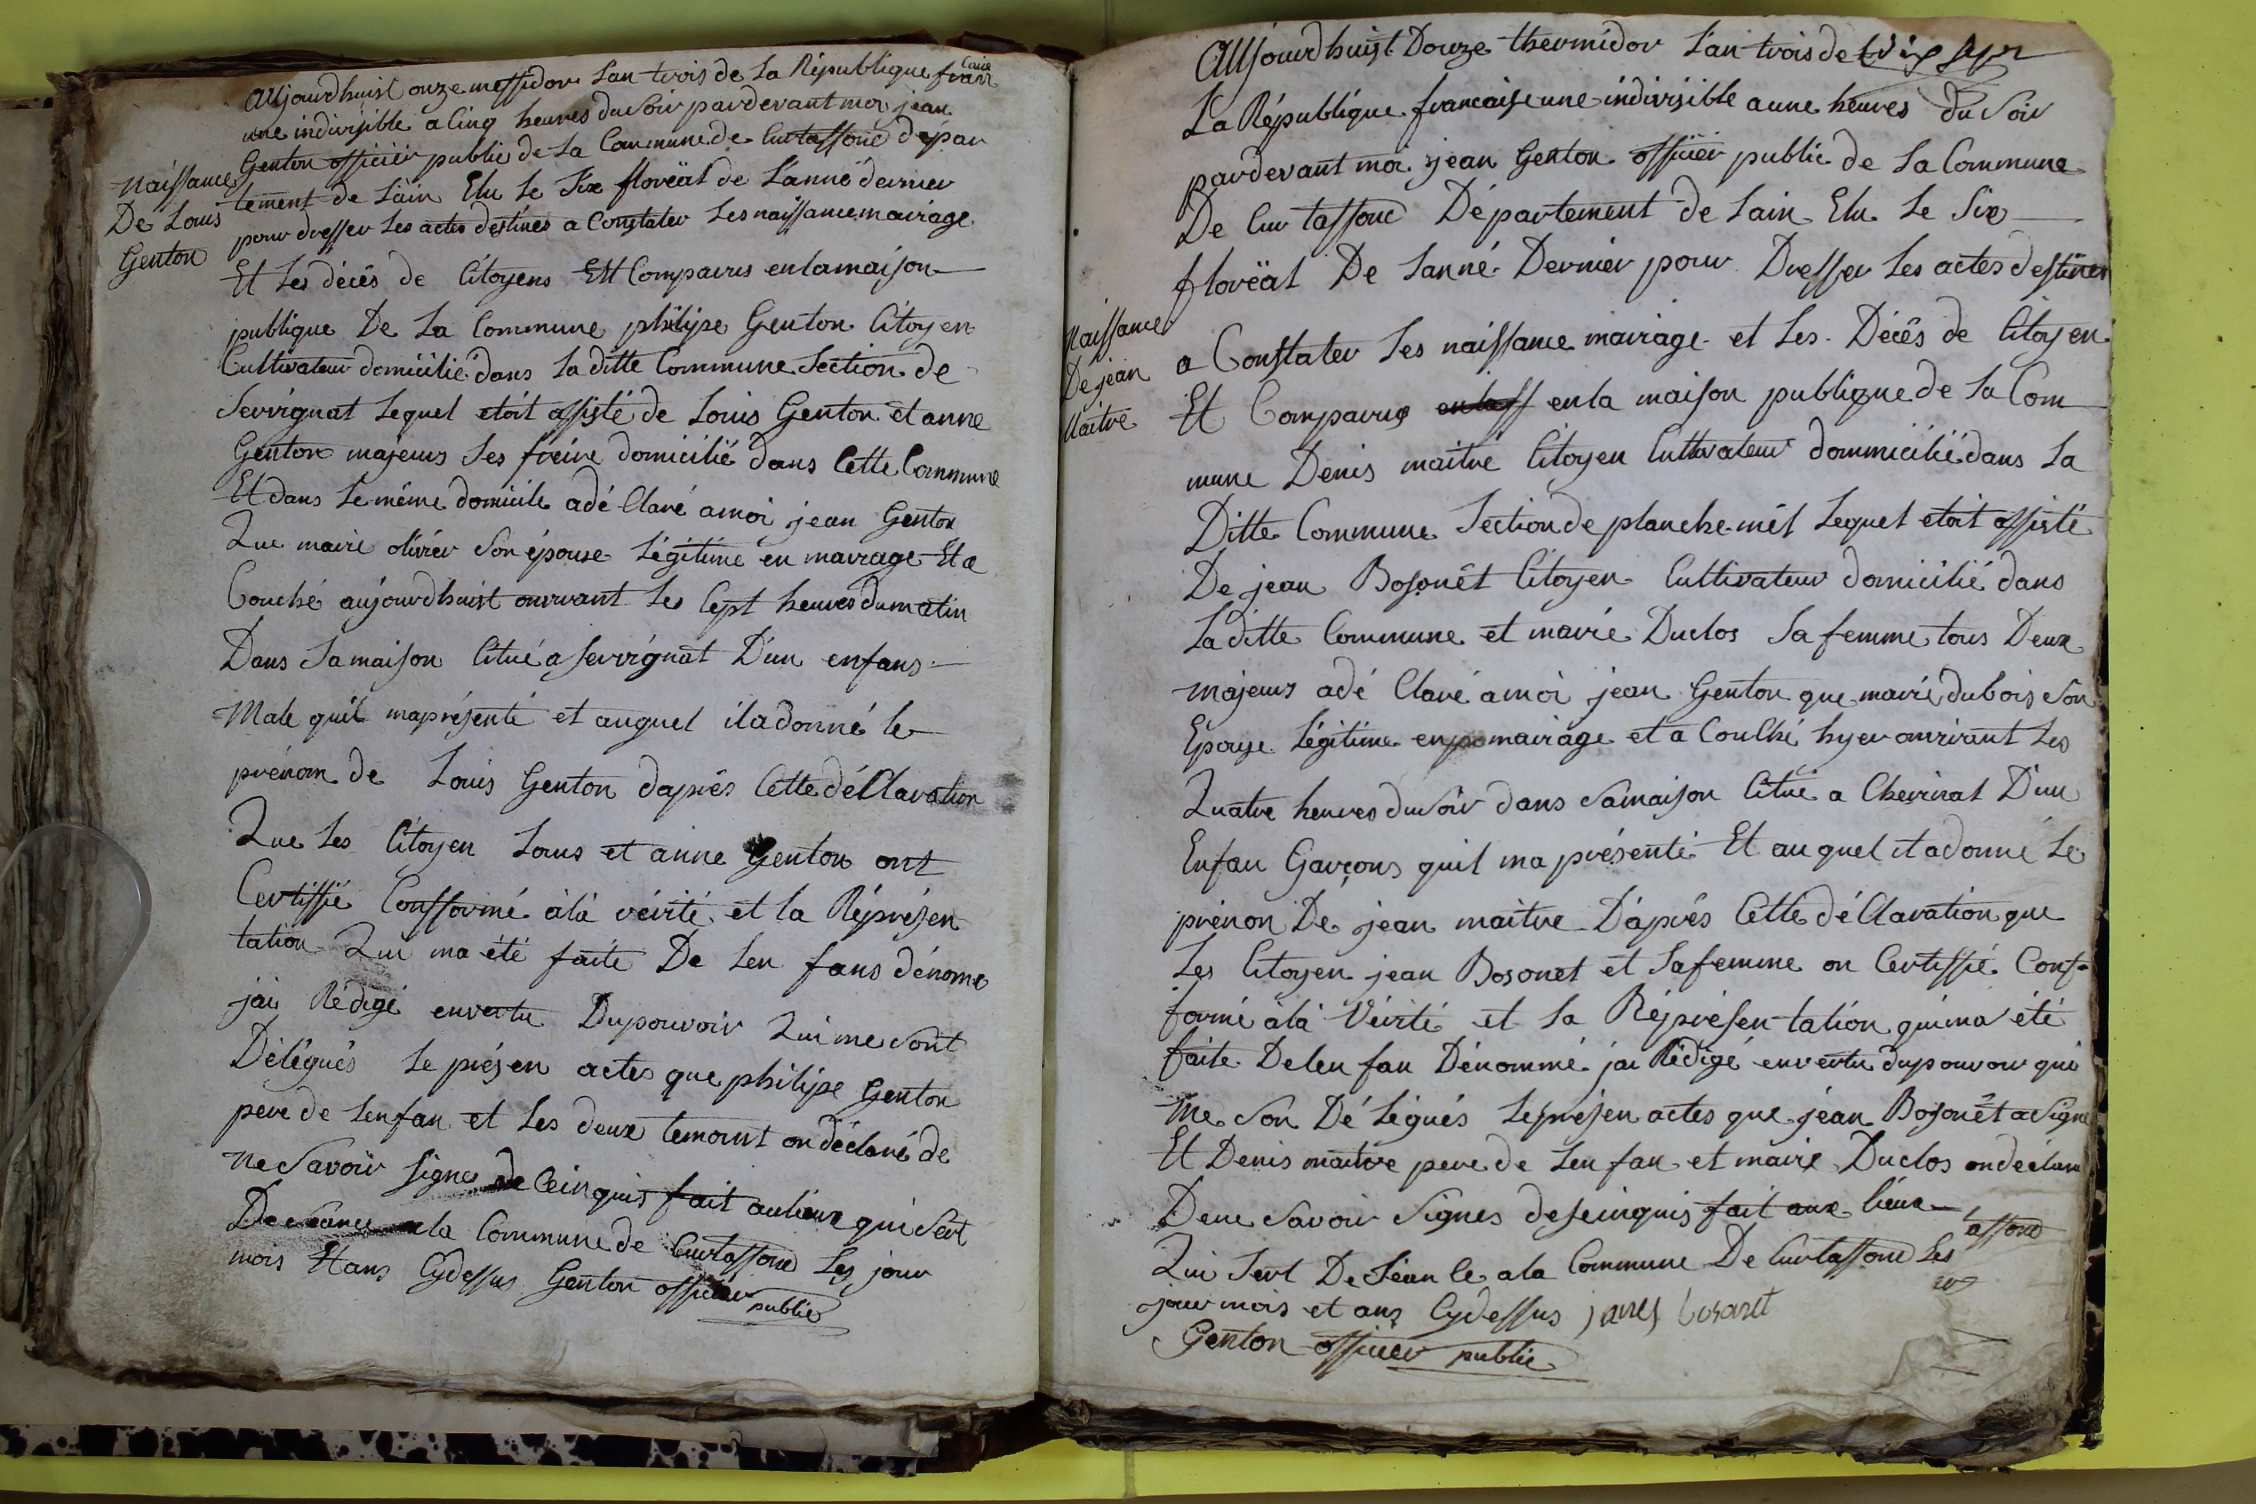 Aujourdhuist onze messidor Lan trois de La République fran
caice
une indivisible a Cinq heures du Soir pardevant moi jean
Genton officiér public de La Commune de Curtafond dépar
tement de Lain Elu Le Six floréal de Lanné dernier
pour dresser Les actes destinés a Constater Les naissance mairiage
Et Les décês de Citoyens Est Comparus en la maison
publique De La Commune philipe Genton Citoyen
Cultivateur domicilié dans La ditte Commune Section de
Servignat Lequel etoit assisté de Louis Genton et anne
Genton majeurs Ses freire domicilié dans Cette Commune
Et dans Le même domicile adé Claré amoi jean Genton
Que marie olivier Son épouse Légitime en mairage Et a
Couché aujourdhuist ouvrant Les Sept heures du matin
Dans Sa maison Citué a Servignat D'un enfans
Male quil maprésenté et auquel il a donné le
prénom de Louis Genton daprés Cette déClaration
Que Les Citoyen Louis et anne Genton ont
Certiffié Conformé àlà vérité et la Réprésen
tation Qui ma été faite De Len fans dénome
jai Rédigé envertu Du pouvoir Qui me Sont
Délégués Le présen actes que philipe Genton
pere de Lenfan et Les deux temoint on déclaré de
Ne Savoir Signes de Ceinquis fait aulieux qui Sert
De Séance a la Commune de Curtafond Les jour
mois Et ans Cydessus Genton officier
public
Naissance
De Louis
Genton
Aujourdhuist Douze thermidor Lan trois de
La République francaise une indivisible a une heures du Soir
pardevant moi jean Genton officier public de La Commune
De Curtafond Département de Lain Elu Le Six
floréal De Lanné Dernier pour Dresser Les actes destines
a Constater Les naissance mairiage et Les Décês de Citoyen
Et Comparus en la maison publique de La Com
mune Denis maitre Citoyen Cultivateur dommicilié dans La
Ditte Commune Section de planche mêl Lequel etoit assisté
De jean Bosonêt Citoyen Cultivateur domicilié dans
La ditte Commune et marie Duclos Sa femme tous Deux
majeurs adé Claré amoi jean Genton que marie dubois Son
Épouse Légitime en mairage et a Couché hyer ouvrirant Les
Quatre heures du Soir dans Sa maison Citué a Chevinat D'un
Enfan Garçons quil ma présenté Et au quel il a donné Le
prénon De jean maitre Daprés Cette déClaration que
Les Citoyen jean Bosonet et Sa femme on Certiffié Conf
formé àlà Vérité et La Réprésentation quima été
faite De Len fan Dénommé jai Rédigé envertu du pouvoir qui
me Son Délégués Le présen actes que jean Bosonêt a Signe
Et Denis maitre pere de Len fan et marie Duclos on declare
De ne Savoir Signes de Seinquis fait aux lieux
Qui Sert De Séan Ce a la Commune De Curtafond Les
jour mois et ans Cydessus
Genton officier public
Naissance
De jean
Maitre